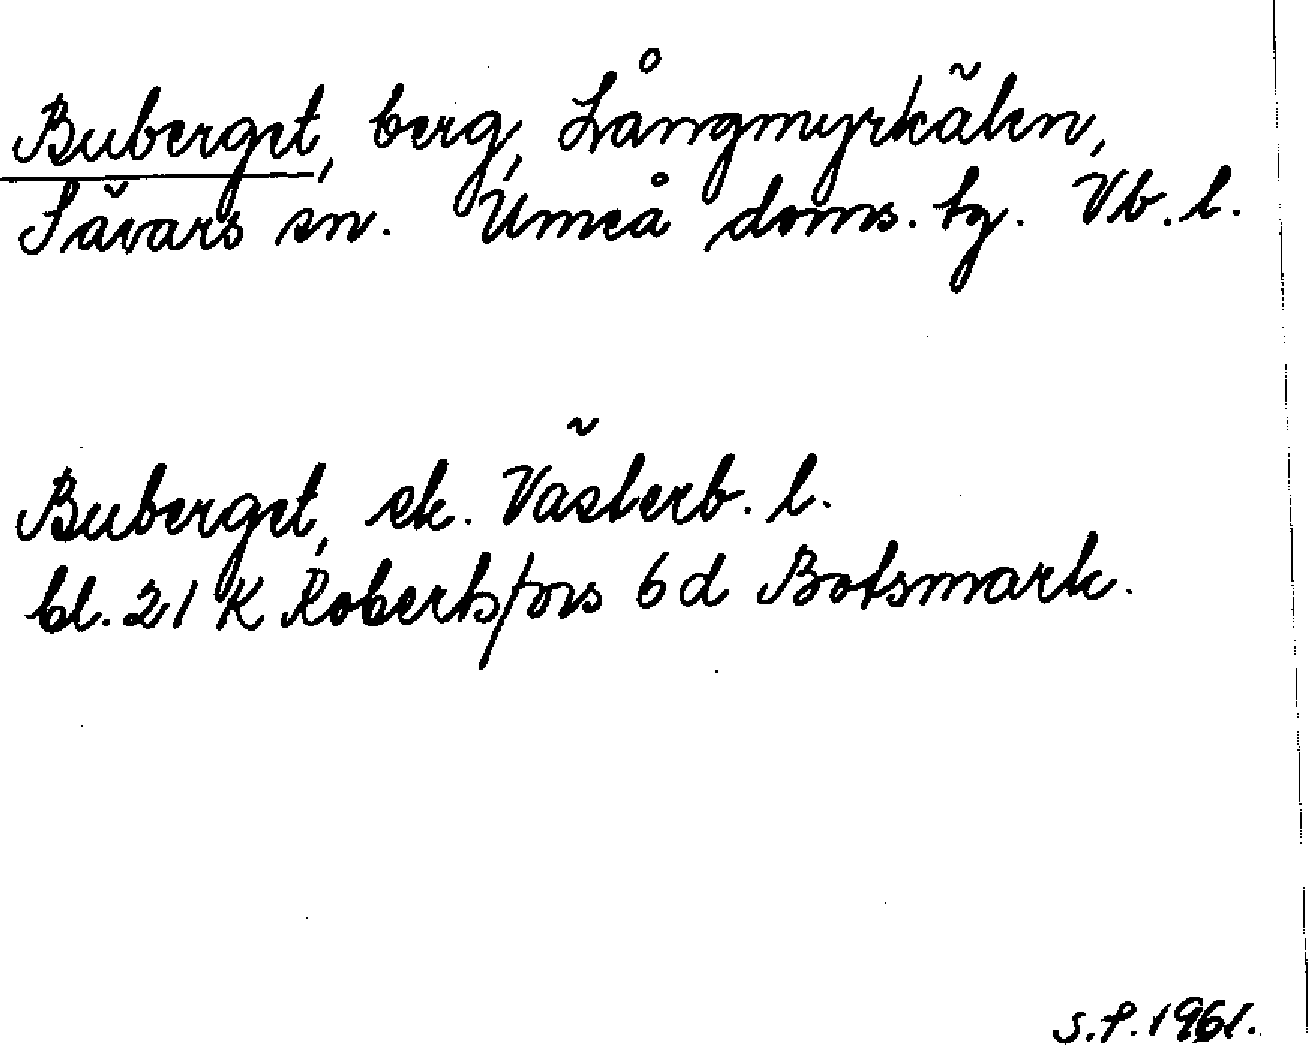 Buberget, berg, Långmyrkälen,
Sävars sn. Umeå doms. tg. Vb. l.
Buberget, ek. Västerb. l.
bl. 21 K Robertsfors 6d Botsmark.
S.P. 1961.